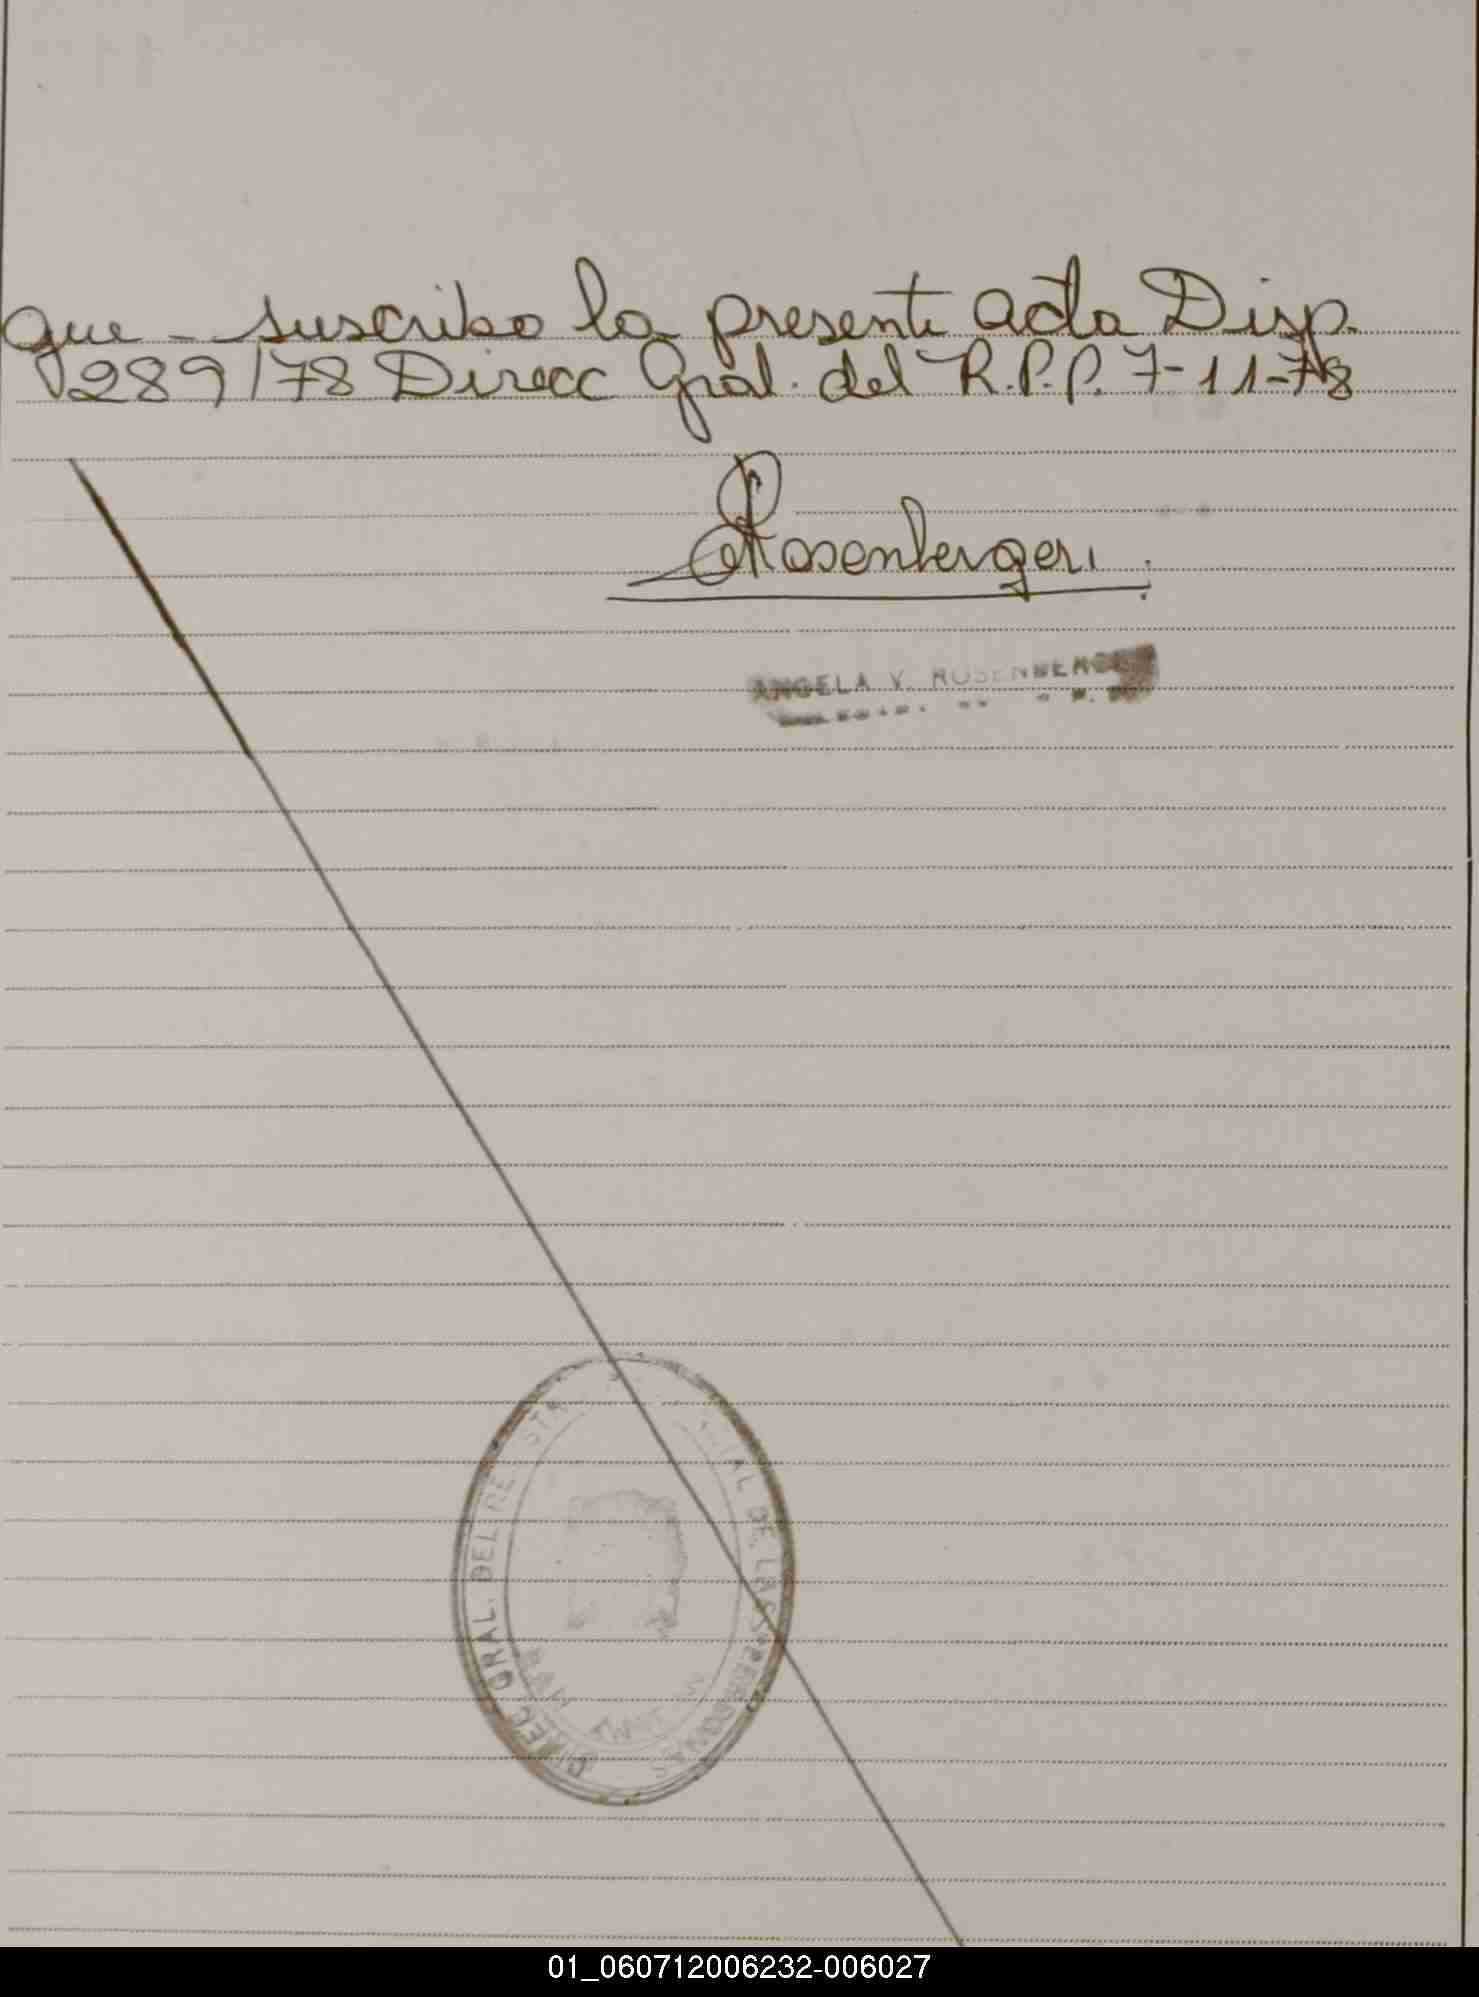 que - suscribo la presente acta Disp.
289/78 Direcc Gral. del R.P.P. 7-11-78
Rosenberger
ANGELA V. ROSENBERGER
DIREC. GRAL. DEL RE
AL DE LAS PERSONAS
01_060712006232-006027